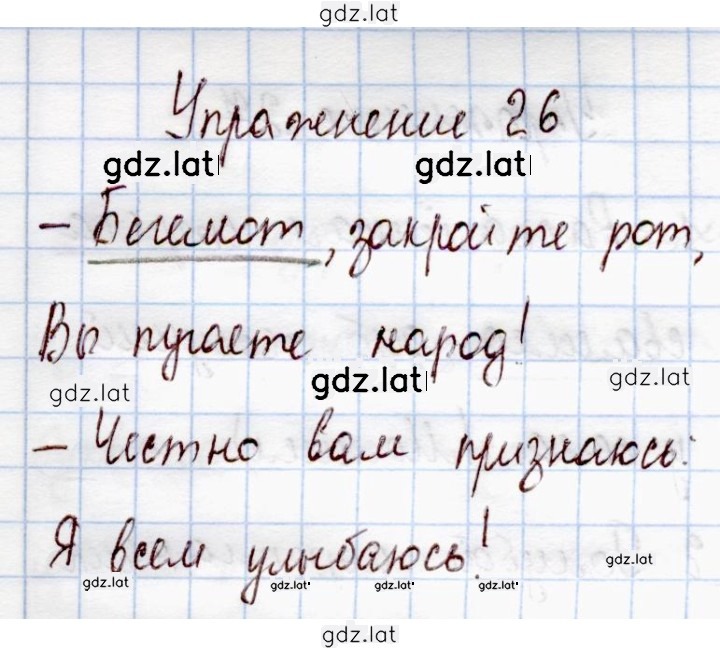 gdz.lat
Упражнение 26
gdz.lat gdz.lat
- Бегемот, закройте рот,
Вы пугаете народ!
gdz.lat gdz.lat gdz.lat
- Честно вам признаюсь:
Я всем улыбаюсь!
gdz.lat gdz.lat gdz.lat gdz.lat gdz.lat
gdz.lat